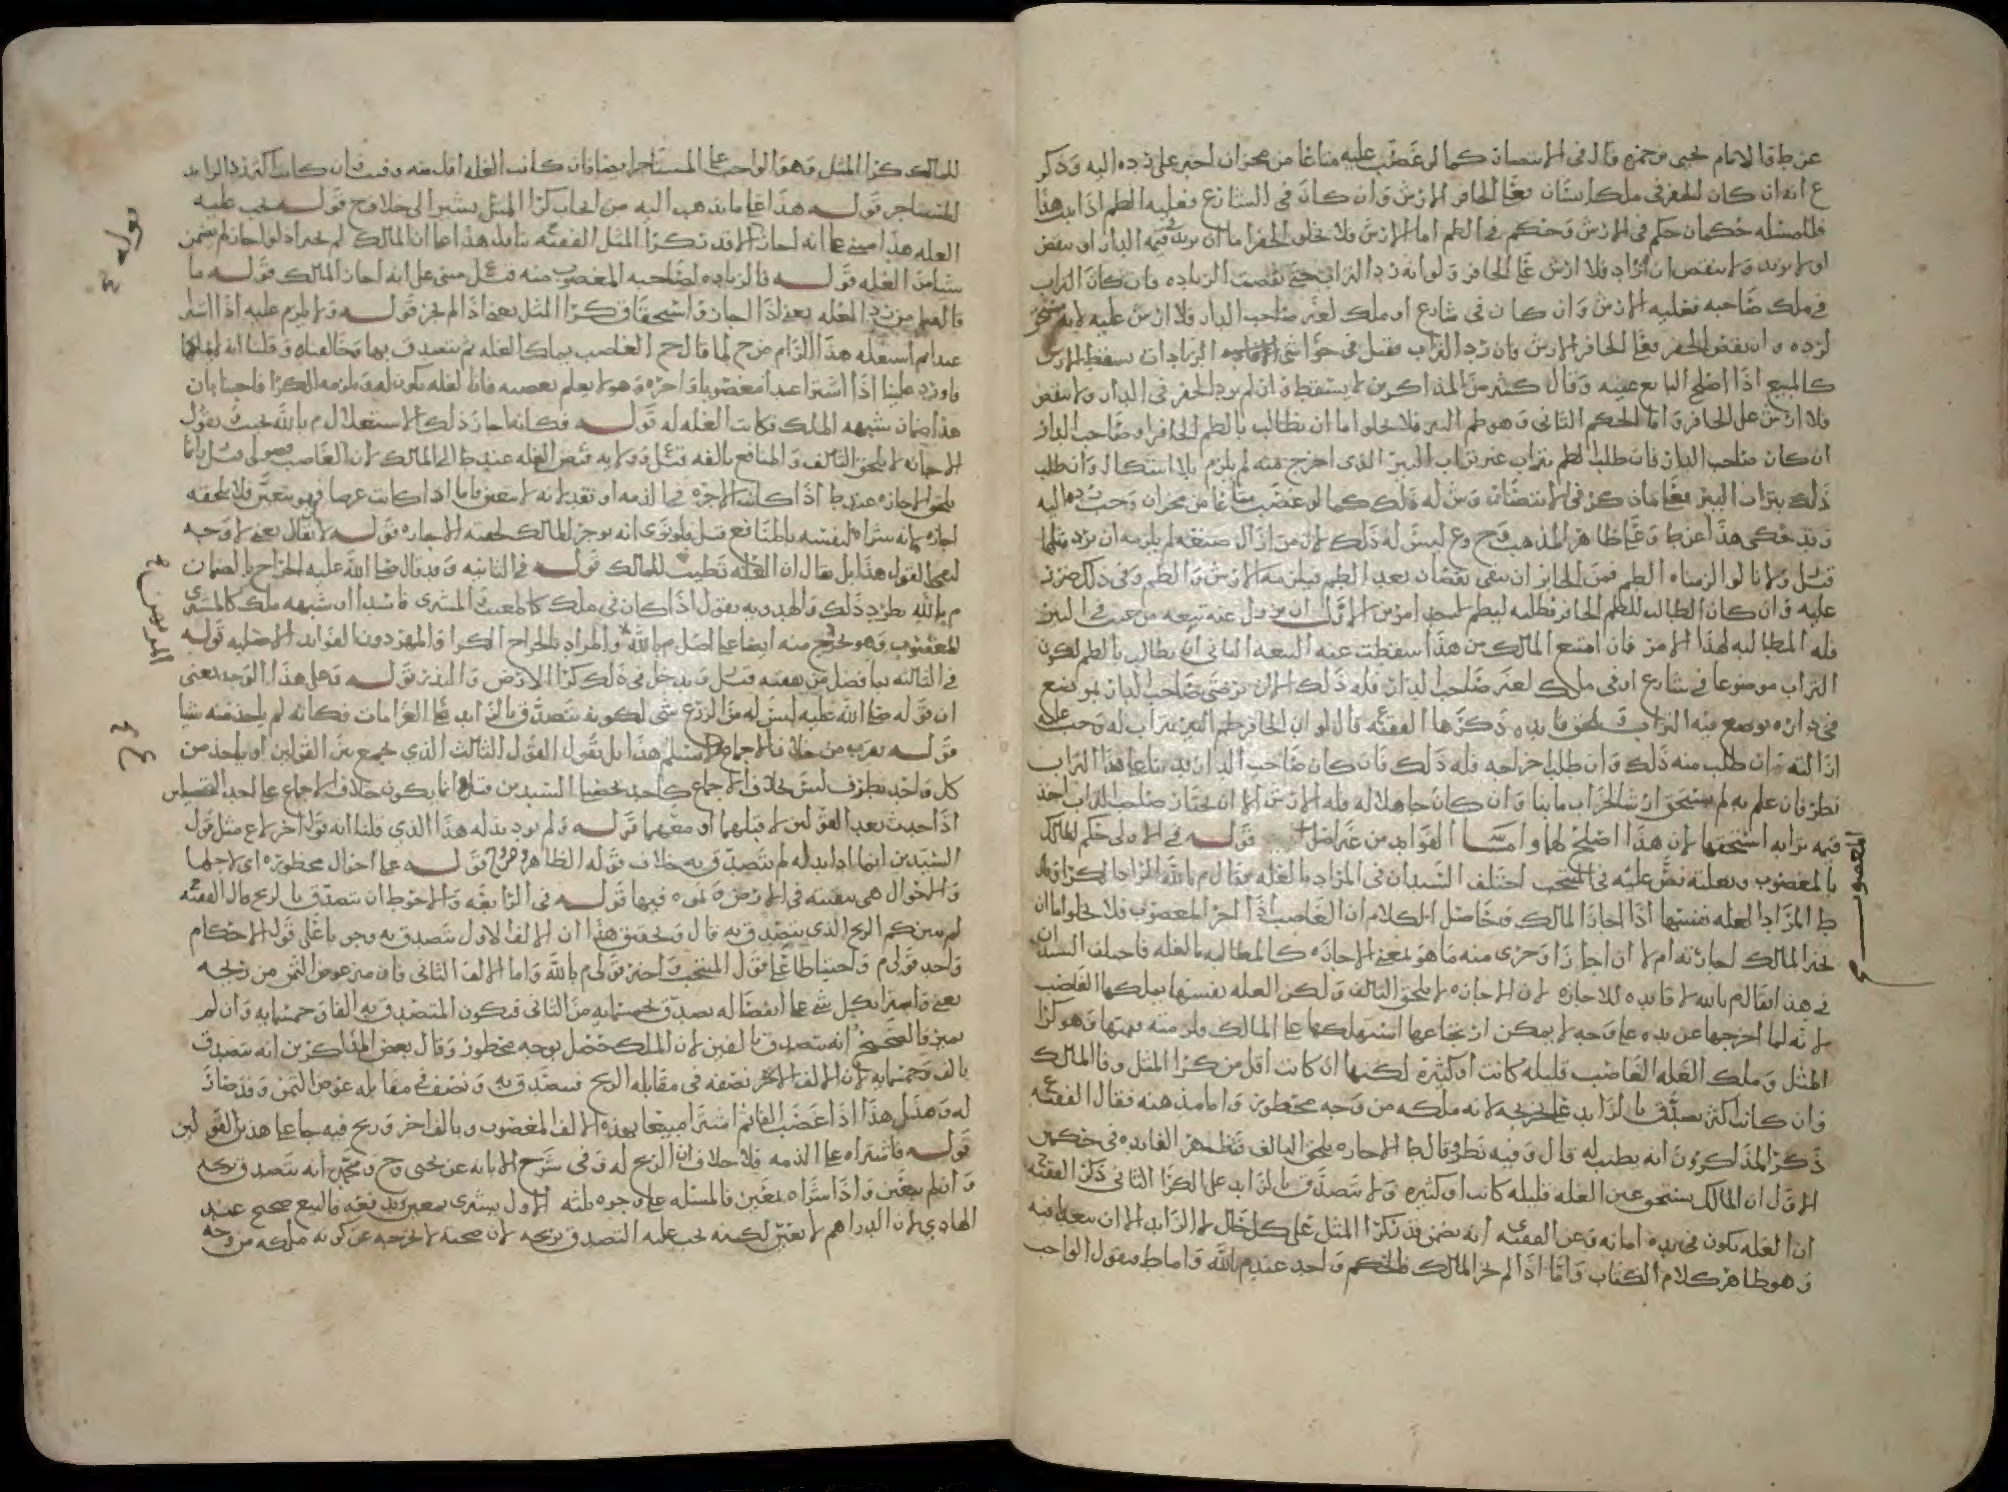 عن ط قال الامام يحيى بن حمزه قال في الانتصار كما لو غصب عليه متاعا من مجران اجبر على رده اليه وذكر
ع انه ان كان الحفر في ملك انسان فعلى الحافر الارش وان كان في الشارع فعليه الطم اذا ثبت هذا
فللمسئله حكمان حكم في الارش وحكم في الطم اما الارش فلا يخلو الحفر اما ان يزيد في قيمه الدار او ينقص
او لا يزيد ولا ينقص ان زاد فلا ارش على الحافر ولو انه رد التراب حتى نقصت الزياده وان كان التراب
في ملك صاحبه فعليه الارش وان كان في شارع او ملك لغير صاحب الدار فلا ارش عليه لانه
لرده وان نقص الحفر فعلى الحافر الارش فان رد التراب فقيل في حواشي الزيادات سقط الارش
كالمبيع اذا اصلح البايع عيبه وقال كثير من المذاكرين لا يسقط وان لم يزد الحفر في الدار ولا نقص
فلا ارش على الحافر واما الحكم الثاني وهو طم البير فلا يخلو اما ان يطالب بالطم الحافر او صاحب الدار
ان كان صاحب الدار فان طلب الطم بتراب غير تراب البير الذي اخرج منه لم يلزم بلا اشكال وان طلب
ذلك بتراب البير فعلى ما ذكره في الانتصار وش له ذلك كما لو غصب متاعا من مجران وجب رده اليه
وقد حكى هذا عن ط وعلى ظاهر المذهب وح وع ليس له ذلك لان من ازال صنعه لم يلزمه ان يرد مثلها
قيل ولانا لو الزمناه الطم فمن الجايز ان يبقى نقصان بعد الطم فيلزمه الارش والطم وفي ذلك ضرر
عليه وان كان الطالب للطم الحافر فطلبه ليطم لاحد امرين الاول ان يزول عنه تبعه من عنت في البير
فله المطالبه لهذا الامر فان امتنع المالك من هذا سقطت عنه التبعه الثاني ان يطالب بالطم لكون
التراب موضوعا في شارع او في ملك لغير صاحب الدار فله ذلك الا ان يرضى صاحب الدار بموضع
في داره يوضع فيه التراب ذكرها الفقيه قال لو ان الحافر طم البير بتراب له وجب عليه
ازالته وان طلب منه ذلك وان طلب اخراجه فله ذلك فان كان صاحب الدار قد بنا على هذا التراب
نظر فان علم به لم يستحق ارش الخراب ما بنا وان كان جاهلا له فله الارش الا ان يختار صاحب التراب اخذ
قيمه ترابه استحقها لان هذا اصلح لهما واما الفوايد من غير اصل قوله في الاولى حكم المالك
بالمغصوب وبغلته نص عليه في المنتخب اختلف السيدان في المراد بالغله فقال م بالله المراد بها الكرا وقال
ط المراد الغله نفسها اذا اجاز المالك وحاصل الكلام ان الغاصب اذا اجر المغصوب فلا يخلو اما ان
يجيز المالك اجارته ام لا ان اجازا وجرى منه ما هو بمعنى الاجازه كالمطالبه بالغله فاختلف السيدان
في هذا فقال م بالله لا فايده للاجازه لان الاجازه لا تلحق التالف ولكن الغله نفسها يملكها الغاصب
لانه لما اخرجها عن يده على وجه لا يمكن ارتجاعها استهلكها على المالك ولزمته قيمتها وهو كرا
المثل وملك الغله الغاصب قليله كانت او كثيره لكنها ان كانت اقل من كرا المثل وفا المالك
وان كانت اكثر تصدق بالزايد على تخريجه لانه ملكه من وجه محظور واما مذهبه فقال الفقيه
ذكر المذاكرون انه يطيب له قال وفيه نظر وقال ط الاجازه تلحق التالف وتظهر الفايده في حكمين
الاول ان المالك يستحق عين الغله قليله كانت او كثيره ولا يتصدق بالزايد على الكرا الثاني ذكر الفقيه
ان الغله تكون في يده امانه وعن الفقيه انه يضمن قدر كرا المثل على كل حال لا الزايد الا ان يتعدا فيه
وهو ظاهر كلام الكتاب واما اذا لم يجز المالك فالحكم واحد عند م بالله واما ط فيقول الواجب
المغصوب
للمالك كرا المثل وهو الواجب على المستاجر ايضا فان كانت الغله اقل منه وفت وان كانت اكثر رد الزايد
للمستاجر قوله هذا على ما يذهب اليه من ايجاب كرا المثل يشير الى خلاف ح قوله يجب عليه
الغله هذا مبني على انه اجاز الا قدر كرا المثل الفقيه تاول هذا على ان المالك لم يجز اذ لو اجاز لم يضمن
شيا من الغله قوله فالزياده لصاحبه المغصوب منه قيل مبني على انه اجاز المالك قوله ما
قالهم من رد الغله يعني اذا اجاز واستحقاق كرا المثل يعني اذا لم يجز قوله ولا يلزم عليه اذا اشترا
عبدا ثم استغله هذا الزام من ح لما قال ح الغاصب يملك الغله ثم يتصدق بها وخالفناه وقلنا انه لا يملكها
فاورد علينا اذا اشترا عبدا مغصوبا واجره وهو لا يعلم بغصبه فان الغله تكون له ويلزمه الكرا فاجبنا بان
هذا ضمان شبهه الملك فكانت الغله له قوله فكانه اجاز ذلك الاستغلال م بالله يجيب ويقول
الاجازه لا تلحق التالف والمنافع تالفه قيل ولانه قبض الغله عند ط الى المالك لان الغاصب فضولي قيل وانما
تلحق الاجازه عند ط اذا كانت الاجره في الذمه او نقد لانه لا يتعين فاما اذا كانت عرضا فهو يتعين فلا تلحقه
اجازه لانه شراه لنفسه بالمنافع قيل فلو نوى انه يوجر للمالك لحقته الاجازه قوله لا يقال يعني لا وجه
لمعنى القول هذا بل يقال ان الغله تطيب للمالك قوله في الثانيه وقد قال صلى الله عليه الخراج بالضمان
م بالله يطرد ذلك والهدويه يقول اذا كان في ملك كالمعيب في المشترى فاسدا او شبهه ملك كالمشترى
المغصوب وهو تخرج منه ايضا على اصل م بالله والمراد بالخراج الكرا والمهر دون الفوايد الاصليه قوله
في الثالثه بما فضل من نفقته قيل ويدخل في ذلك كرا الارض والبذر قوله وعلى هذا الوجه يعني
ان قوله صلى الله عليه ليس له من الزرع شي لكونه يتصدق بالزايد على الغرامات فكانه لم ياخذ منه شيا
قوله يقرب من خلاف الاجماع لا نسلم هذا بل نقول القول الثالث الذي يجمع بين القولين او ياخذ من
كل واحد بطرف ليس بخلاف الاجماع كاحد تحصيل السيدين قيل وانما يكون خلاف الاجماع على احد التفصيلين
اذا حدث بعد القولين لا قبلهما او معهما قوله ولم يود بذله هذا الذي قلنا انه قول اخر لا ع مثل قول
السيدين ايهما اذا بدا له لم يتصدق به خلاف قوله الظاهر قوله على احوال محظوره اي لاجلها
والاحوال هي سقيته في الارض ونموه فيها قوله في الرابعه والاحوط ان يتصدق بالربح قال الفقيه
لم يبين كم الربح الذي يتصدق به قال وتحقيق هذا ان الالف الاول يتصدق به وجوبا على قوله الاحكام
واحد قولي م واحتياطا على قول المنتخب واخير قولي م بالله واما الالف الثاني فان ميز عوض الثمن من ربحه
يعني واشترا بكل شي على انفصاله تصدق بخمسمايه من الثاني فيكون المتصدق به الفا وخمسمايه وان لم
يميز فالصحيح انه يتصدق بالفين لان الملك حصل بوجه محظور وقال بعض المذاكرين انه يتصدق
بالف وخمسمايه لان الالف الاخر نصفه في مقابله الربح فيتصدق به ونصف في مقابله عوض الثمن وقد صار
له ومثل هذا اذا غصب الفا ثم اشترا مبيعا بهذه الالف المغصوب وبالف اخر وربح فيه جا على هذين القولين
قوله فاشتراه على الذمه فلا خلاف ان الربح له وفي شرح الابانه عن يحيى وح ومحمد انه يتصدق بربحه
وان لم يتعين واذا اشتراه بمعين فالمسئله على وجوه ثلثه الاول يشترى بمعين ويدفعه فالبيع صحيح عند
الهادي لان الدراهم لا تتعين لكنه يجب عليه التصدق بربحه لان صحته لا تخرجه عن كونه ملكه من وجه